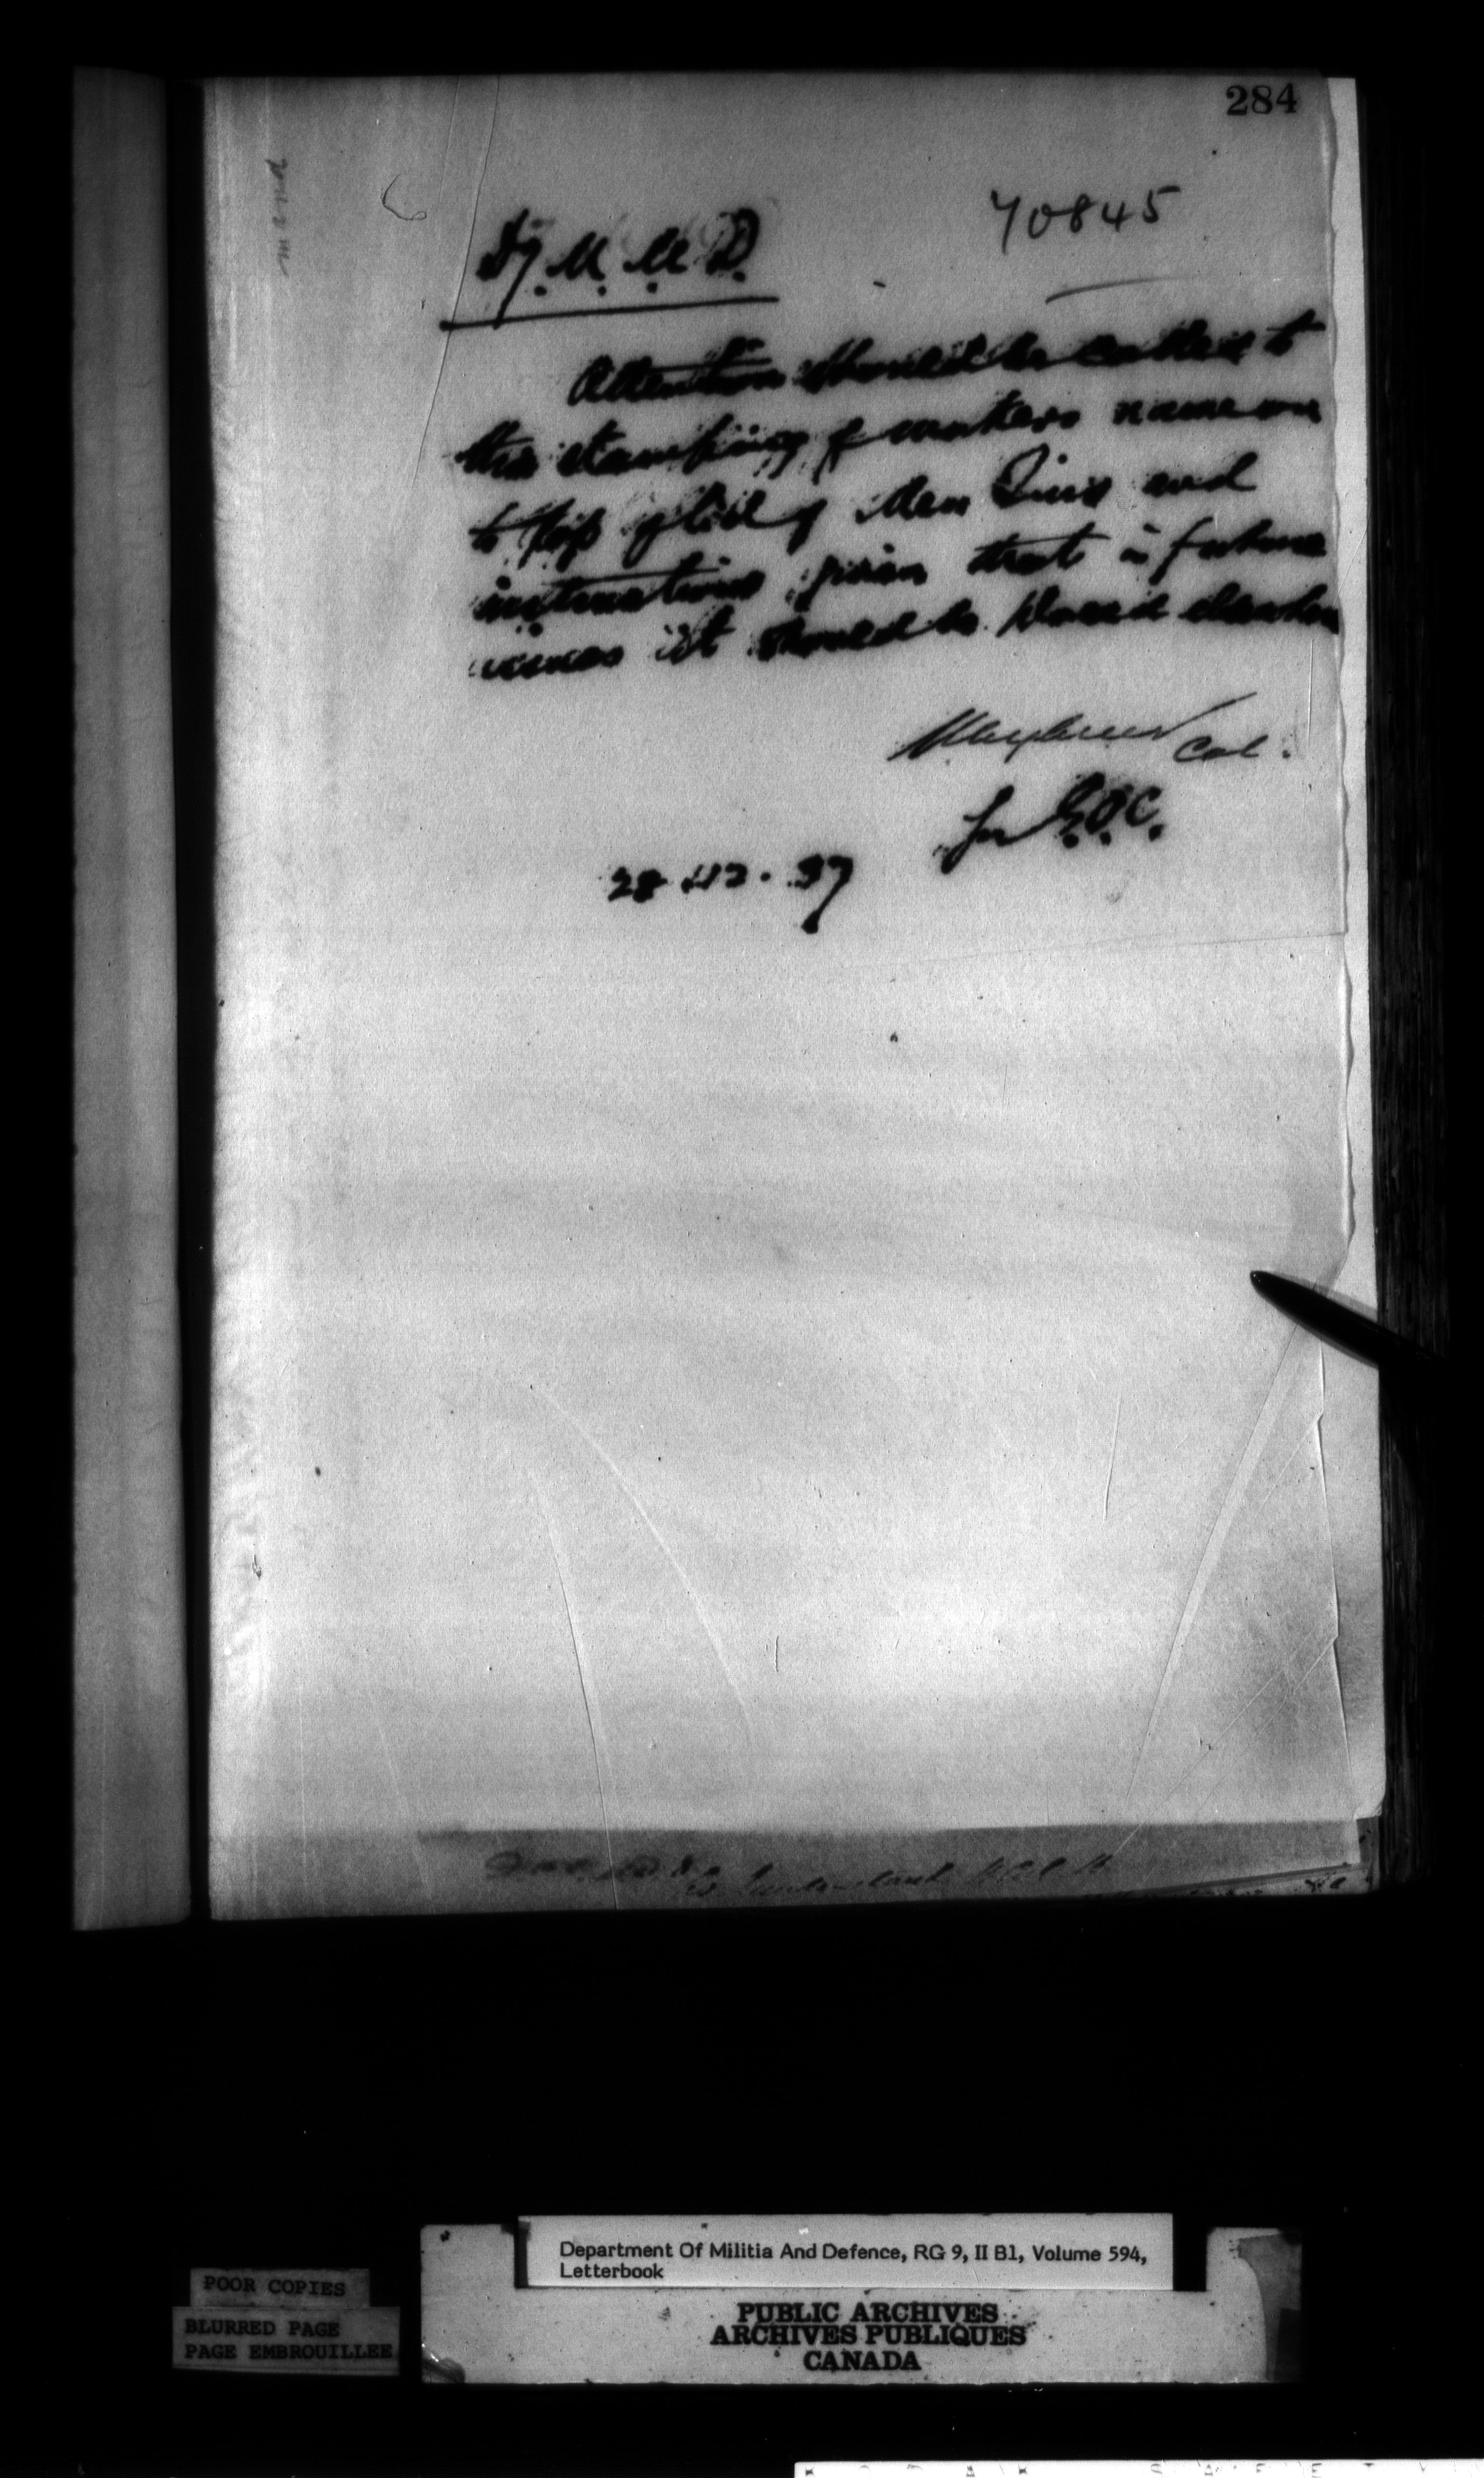 284
70845
Dy. M. M. D.
Attention should be called to
the stamping of makers name on
to top of lid of Mess Tins and
instructions given that in future
issues it should be placed elsewhere
Col.
for G.O.C.
28.12.97
Department Of Militia And Defence, RG 9, II B1, Volume 594,
Letterbook
POOR COPIES
BLURRED PAGE
PAGE EMBROUILLEE
PUBLIC ARCHIVES
ARCHIVES PUBLIQUES
CANADA